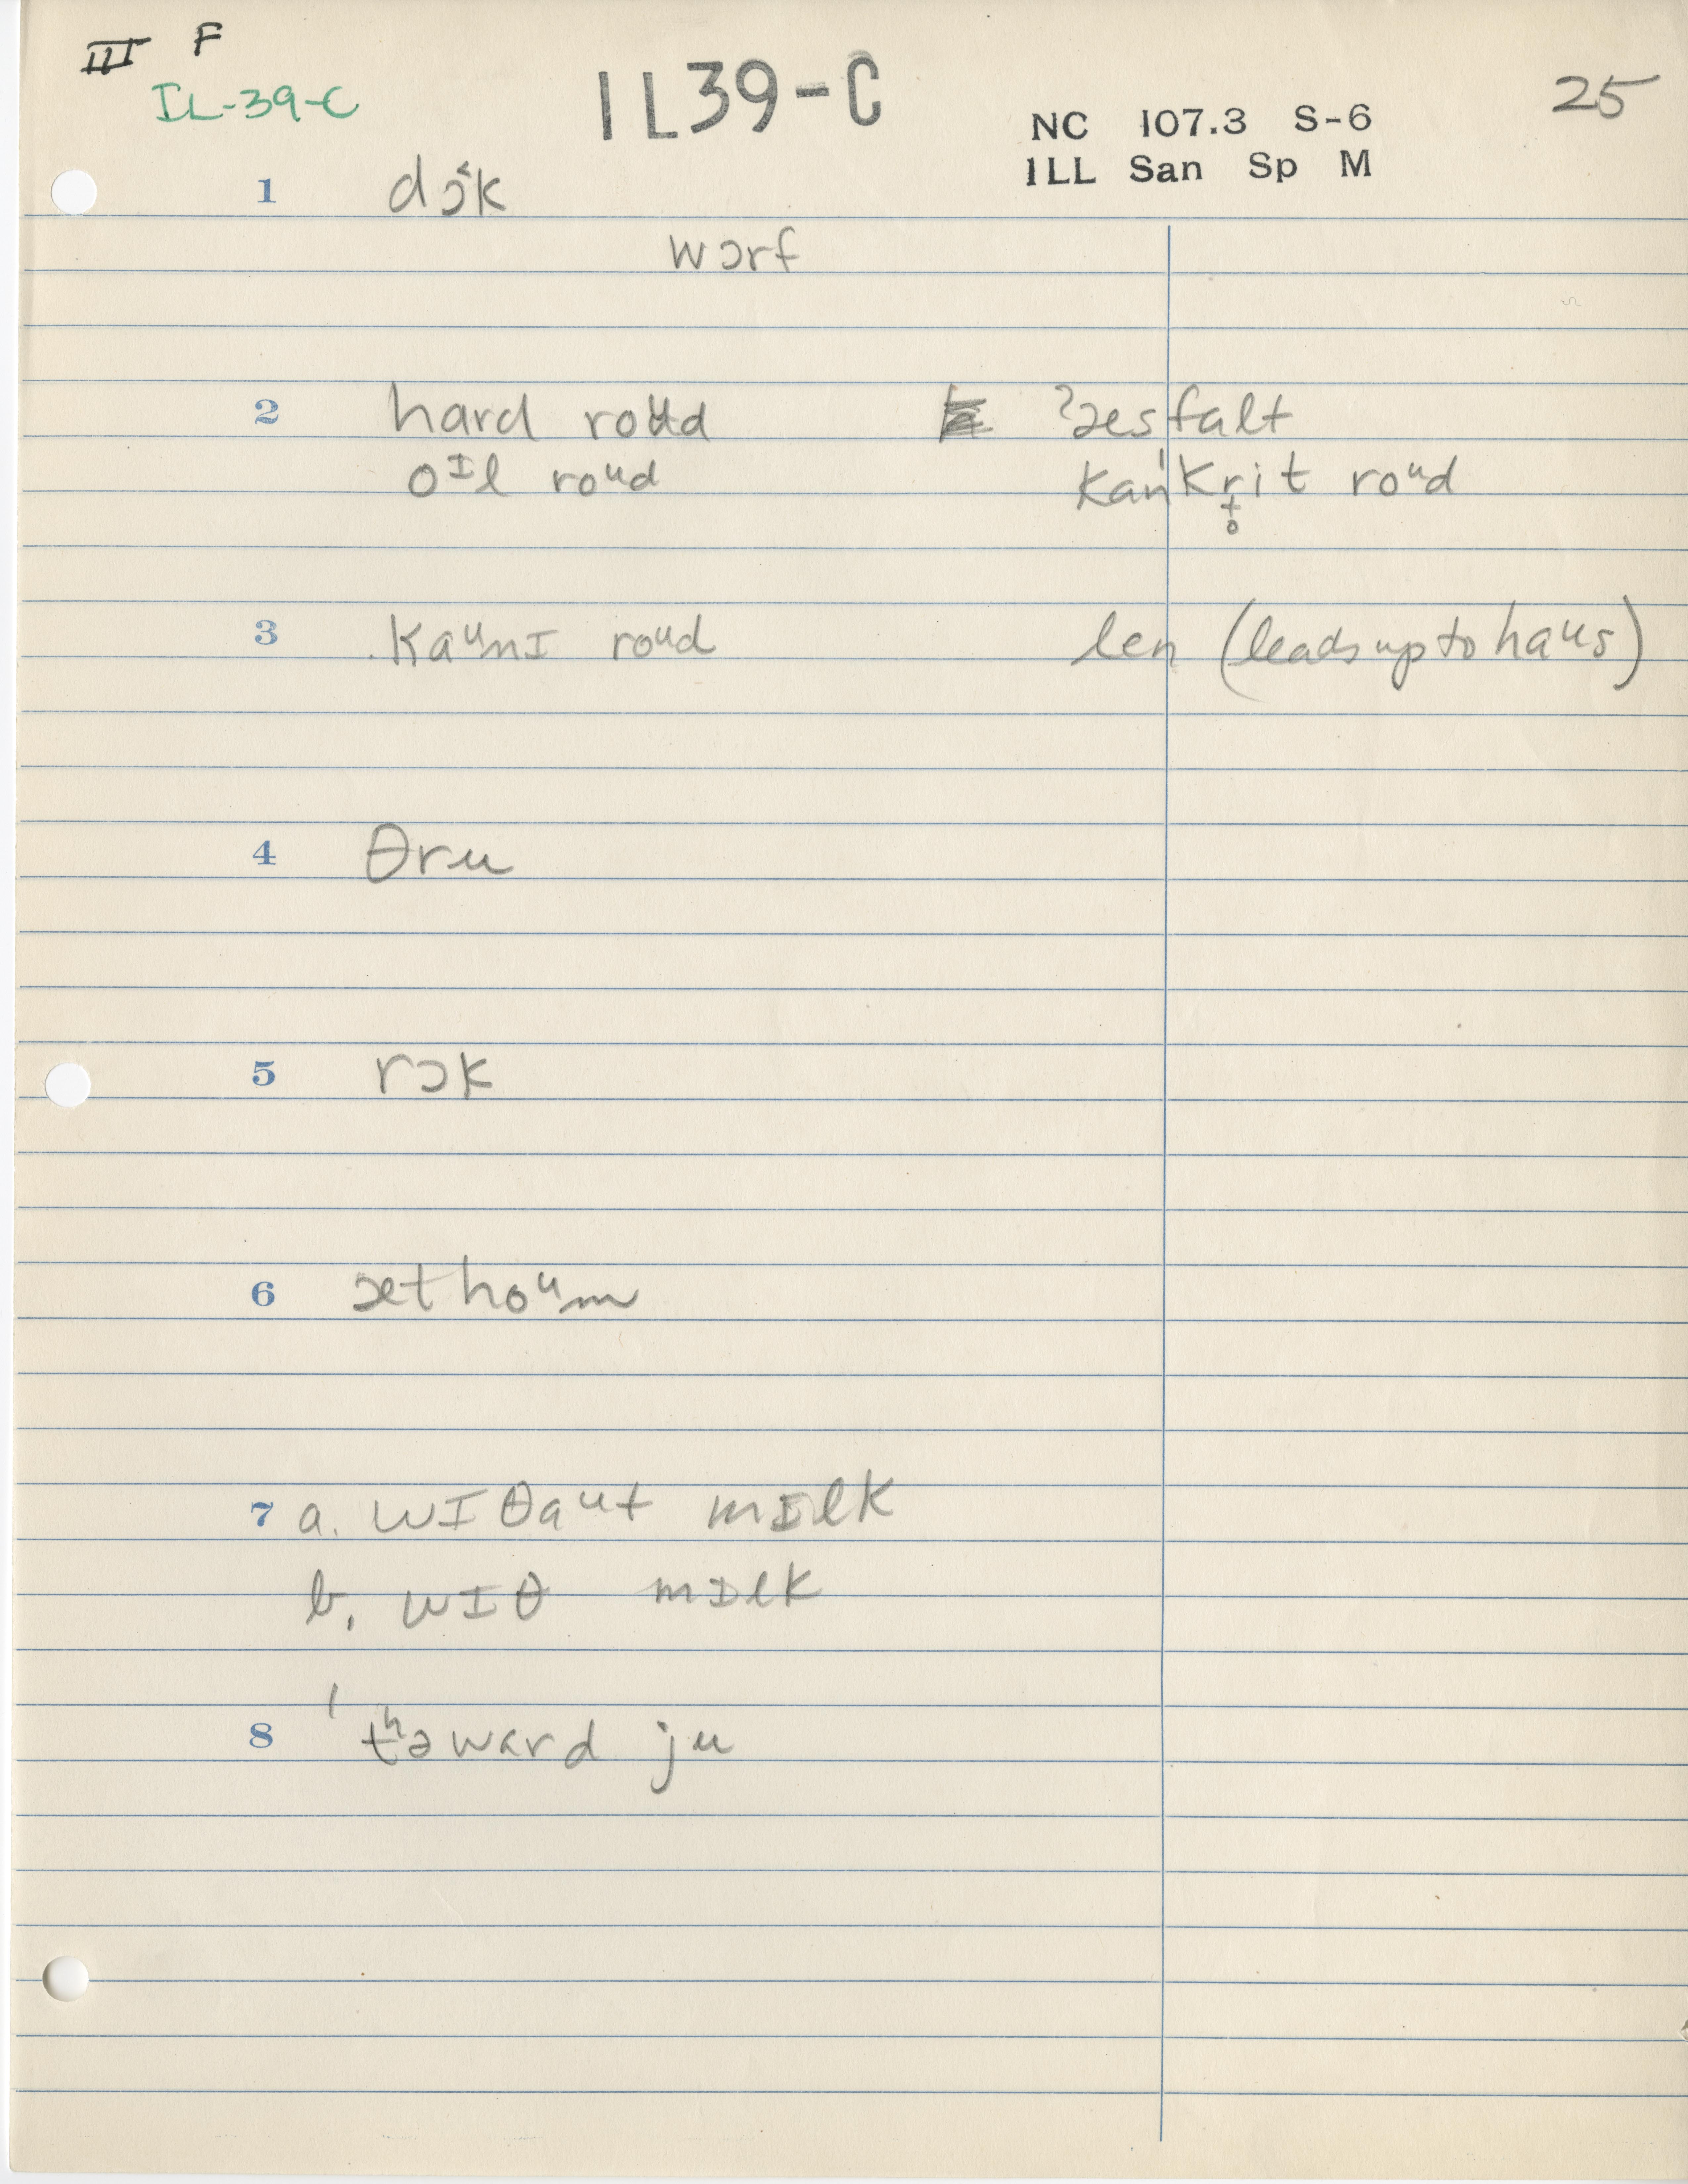 III F
IL-39-C
IL39-C
NC 107.3 S-6
ILL San Sp M
25
1 dɔ˂k
wɔrf
2 hard roᵘd ʔæsfalt
oᴵl roᵘd kanˈkr̥it roᵘd
3 kaᵘnɪ roᵘd len (leads up to haᵘs)
4 θru
5 rɔk
6 æt hoᵘm
7 a. wɪθaᵘt mɪlk
b. wɪθ mɪlk
8 ˈtʰəward ju